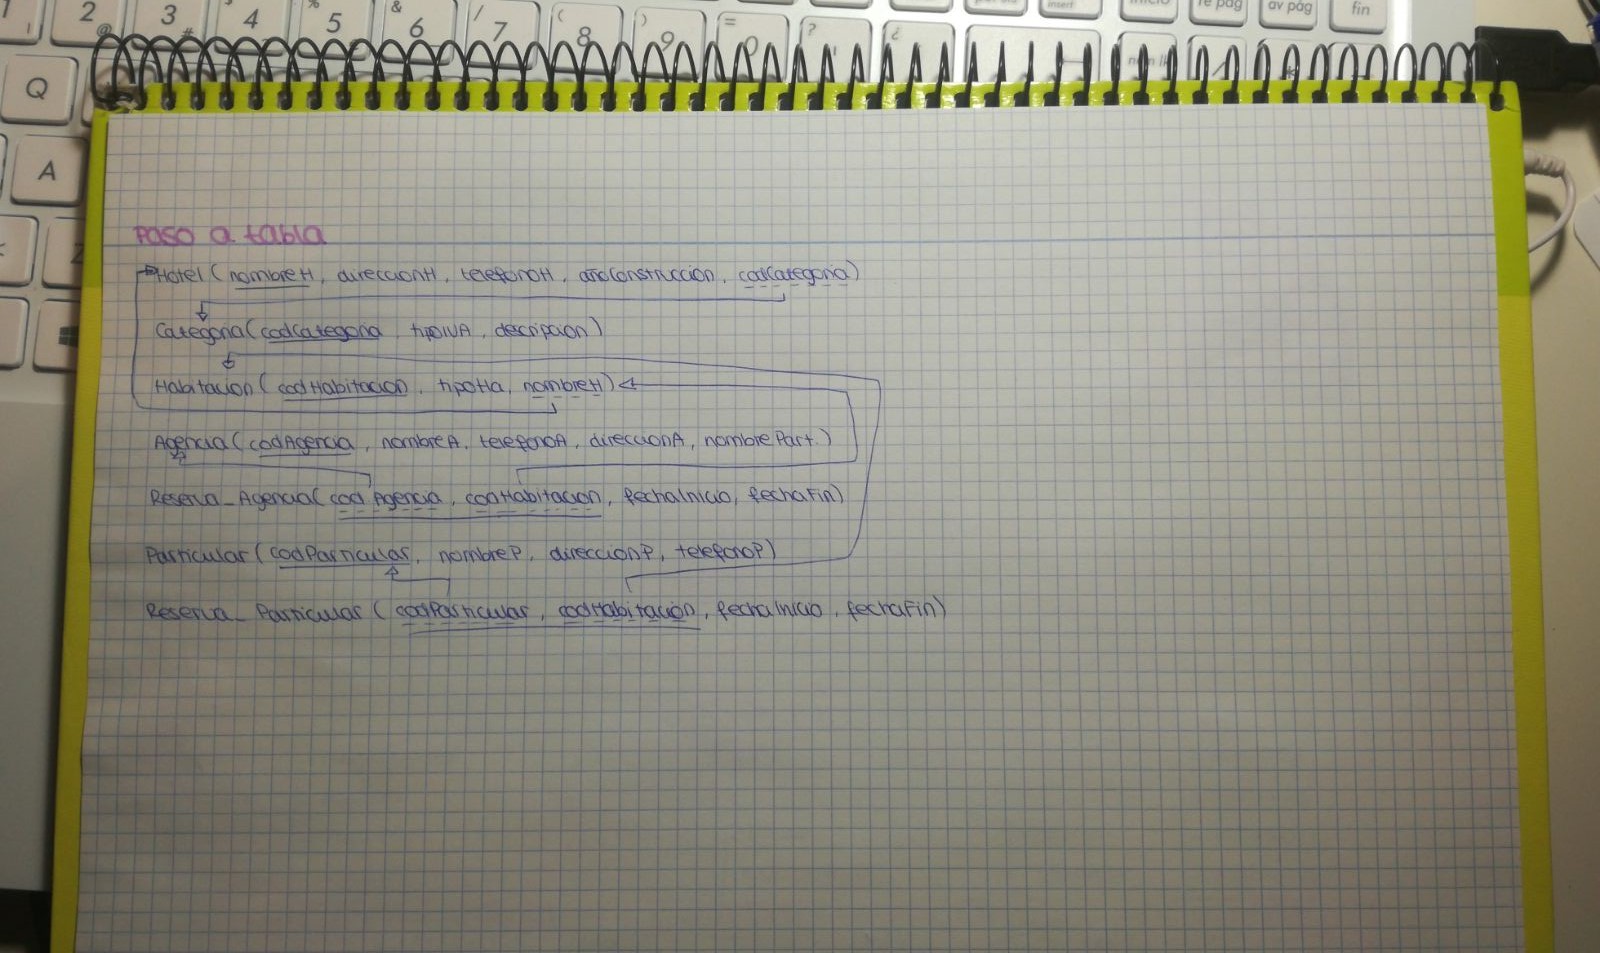 1 2 3 4 5 6 7 8 9 0
insert inicio re pág av pág fin
Q
A
Z
Paso a tabla
Hotel (nombreH, direccionH, telefonoH, añoConstruccion, codCategoria)
Categoria (codCategoria, tipoIVA, descripcion)
Habitacion (codHabitacion, tipoHa, nombreH)
Agencia (codAgencia, nombreA, telefonoA, direccionA, nombrePart.)
Reserva_Agencia (codAgencia, codHabitacion, fechaInicio, fechaFin)
Particular (codParticular, nombreP, direccionP, telefonoP)
Reserva_Particular (codParticular, codHabitación, fechaInicio, fechaFin)